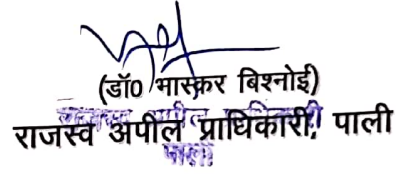 (डॉ0 भास्कर बिश्नोई)
राजस्व अपील प्राधिकारी, पाली